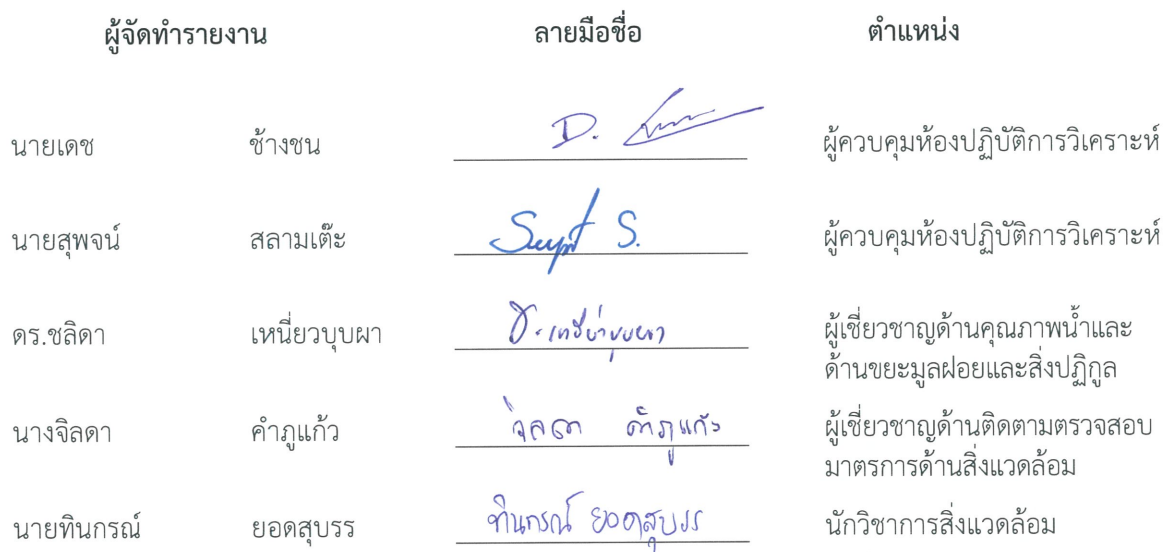 ผู้จัดทำรายงาน ลายมือชื่อ ตำแหน่ง
นายเดช ช้างชน D. ผู้ควบคุมห้องปฏิบัติการวิเคราะห์
นายสุพจน์ สลามเต๊ะ S. ผู้ควบคุมห้องปฏิบัติการวิเคราะห์
ดร.ชลิดา เหนี่ยวบุบผา ช. เหนี่ยวบุบผา ผู้เชี่ยวชาญด้านคุณภาพน้ำและ
ด้านขยะมูลฝอยและสิ่งปฏิกูล
นางจิลดา คำภูแก้ว จิลดา คำภูแก้ว ผู้เชี่ยวชาญด้านติดตามตรวจสอบ
มาตรการด้านสิ่งแวดล้อม
นายทินกรณ์ ยอดสุบรร ทินกรณ์ ยอดสุบรร นักวิชาการสิ่งแวดล้อม